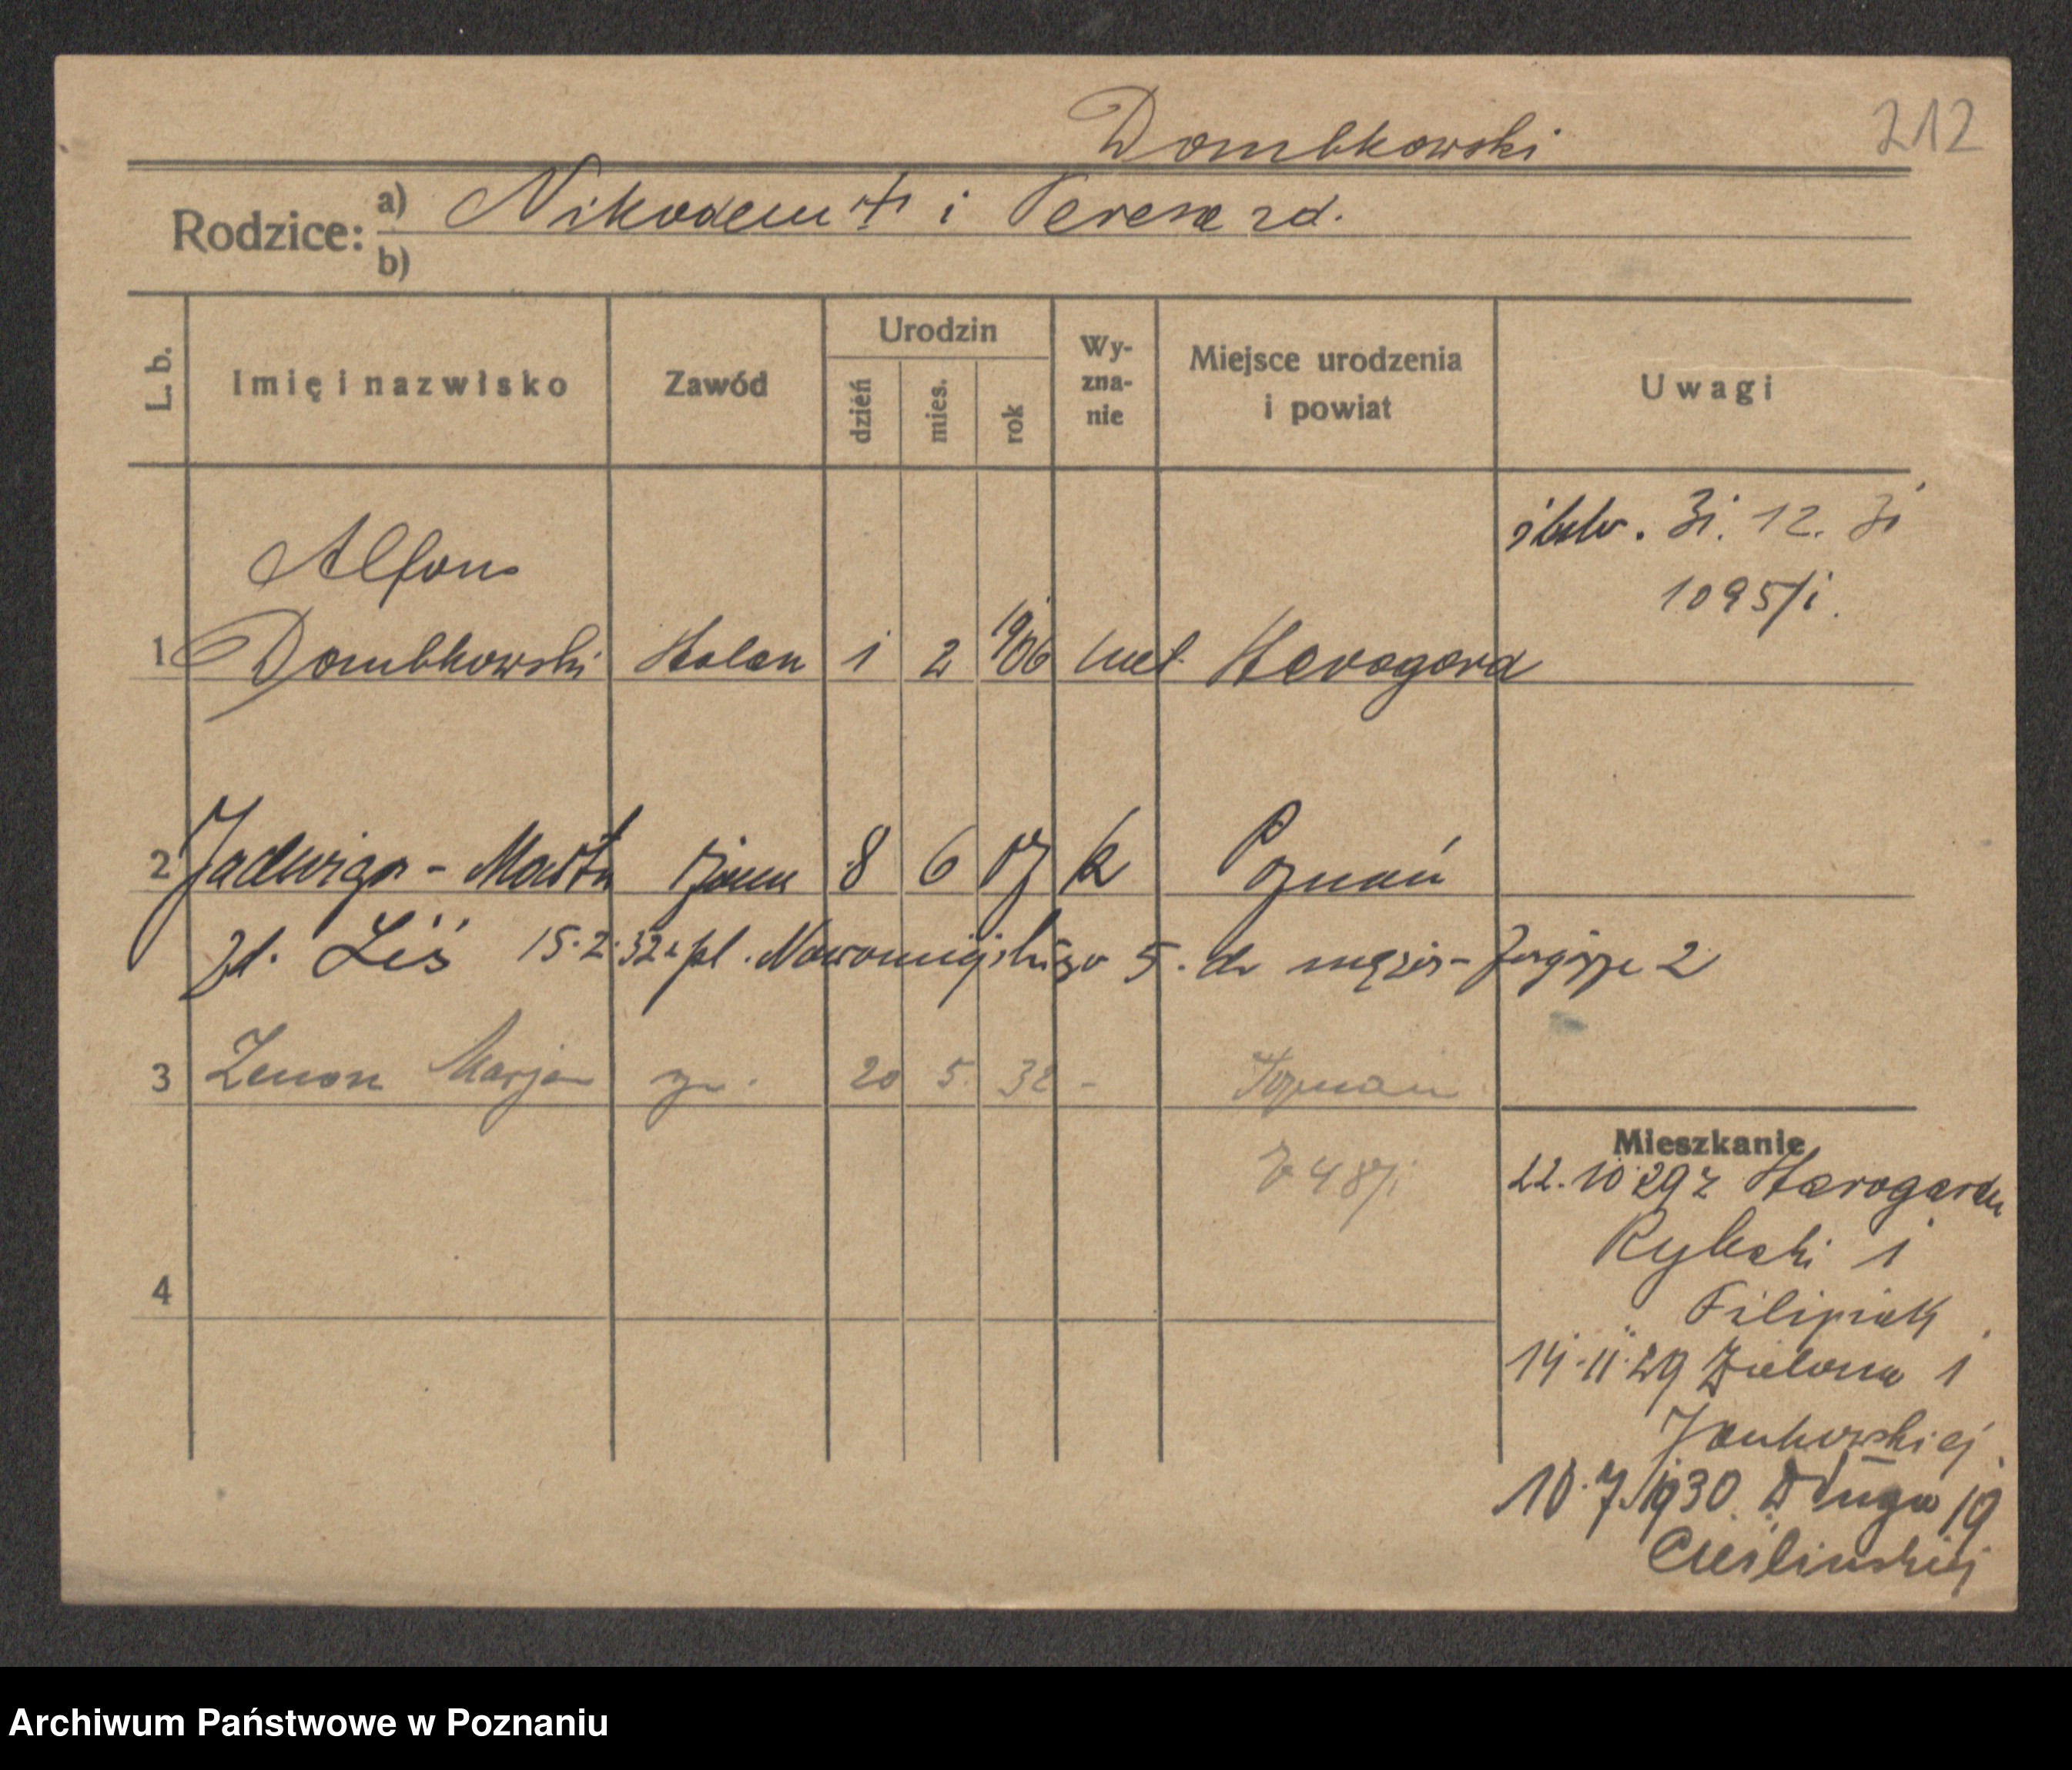 Dombkowski 212
Rodzice: a) Nikodem + i Teresa zd.
b)
L. b. Imię i nazwisko Zawód Urodzin dzień mies. rok Wy-zna-nie Miejsce urodzenia i powiat Uwagi
31. 12. 31
1095/i.
Alfons
1 Dombkowski 1 2 1906 Starogard
2 Jadwiga - Marta żona 8 6 07 k Poznań
zd. Liś 15.2.32 z pl. Nowomiejskiego 5. do męża - 2
3 Zenon Marjan 20 5 32 - Poznań
Mieszkanie
48/i
22.10.29 z Starogardu
Rybaki 1
4
Filipiak
14.11.29 Zielona 1
Jankowskiej
10.7.1930. Długa 19
Cieślińskiej
Archiwum Państwowe w Poznaniu